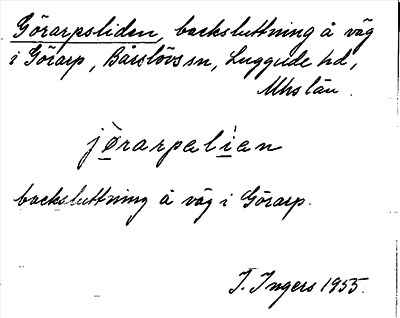 Görarpsliden, backsluttning å väg
i Görarp, Bårslövs sn, Luggude hd,
Mhs län.
jörarpalian
backsluttning å väg i Görarp.
I. Ingers 1955.